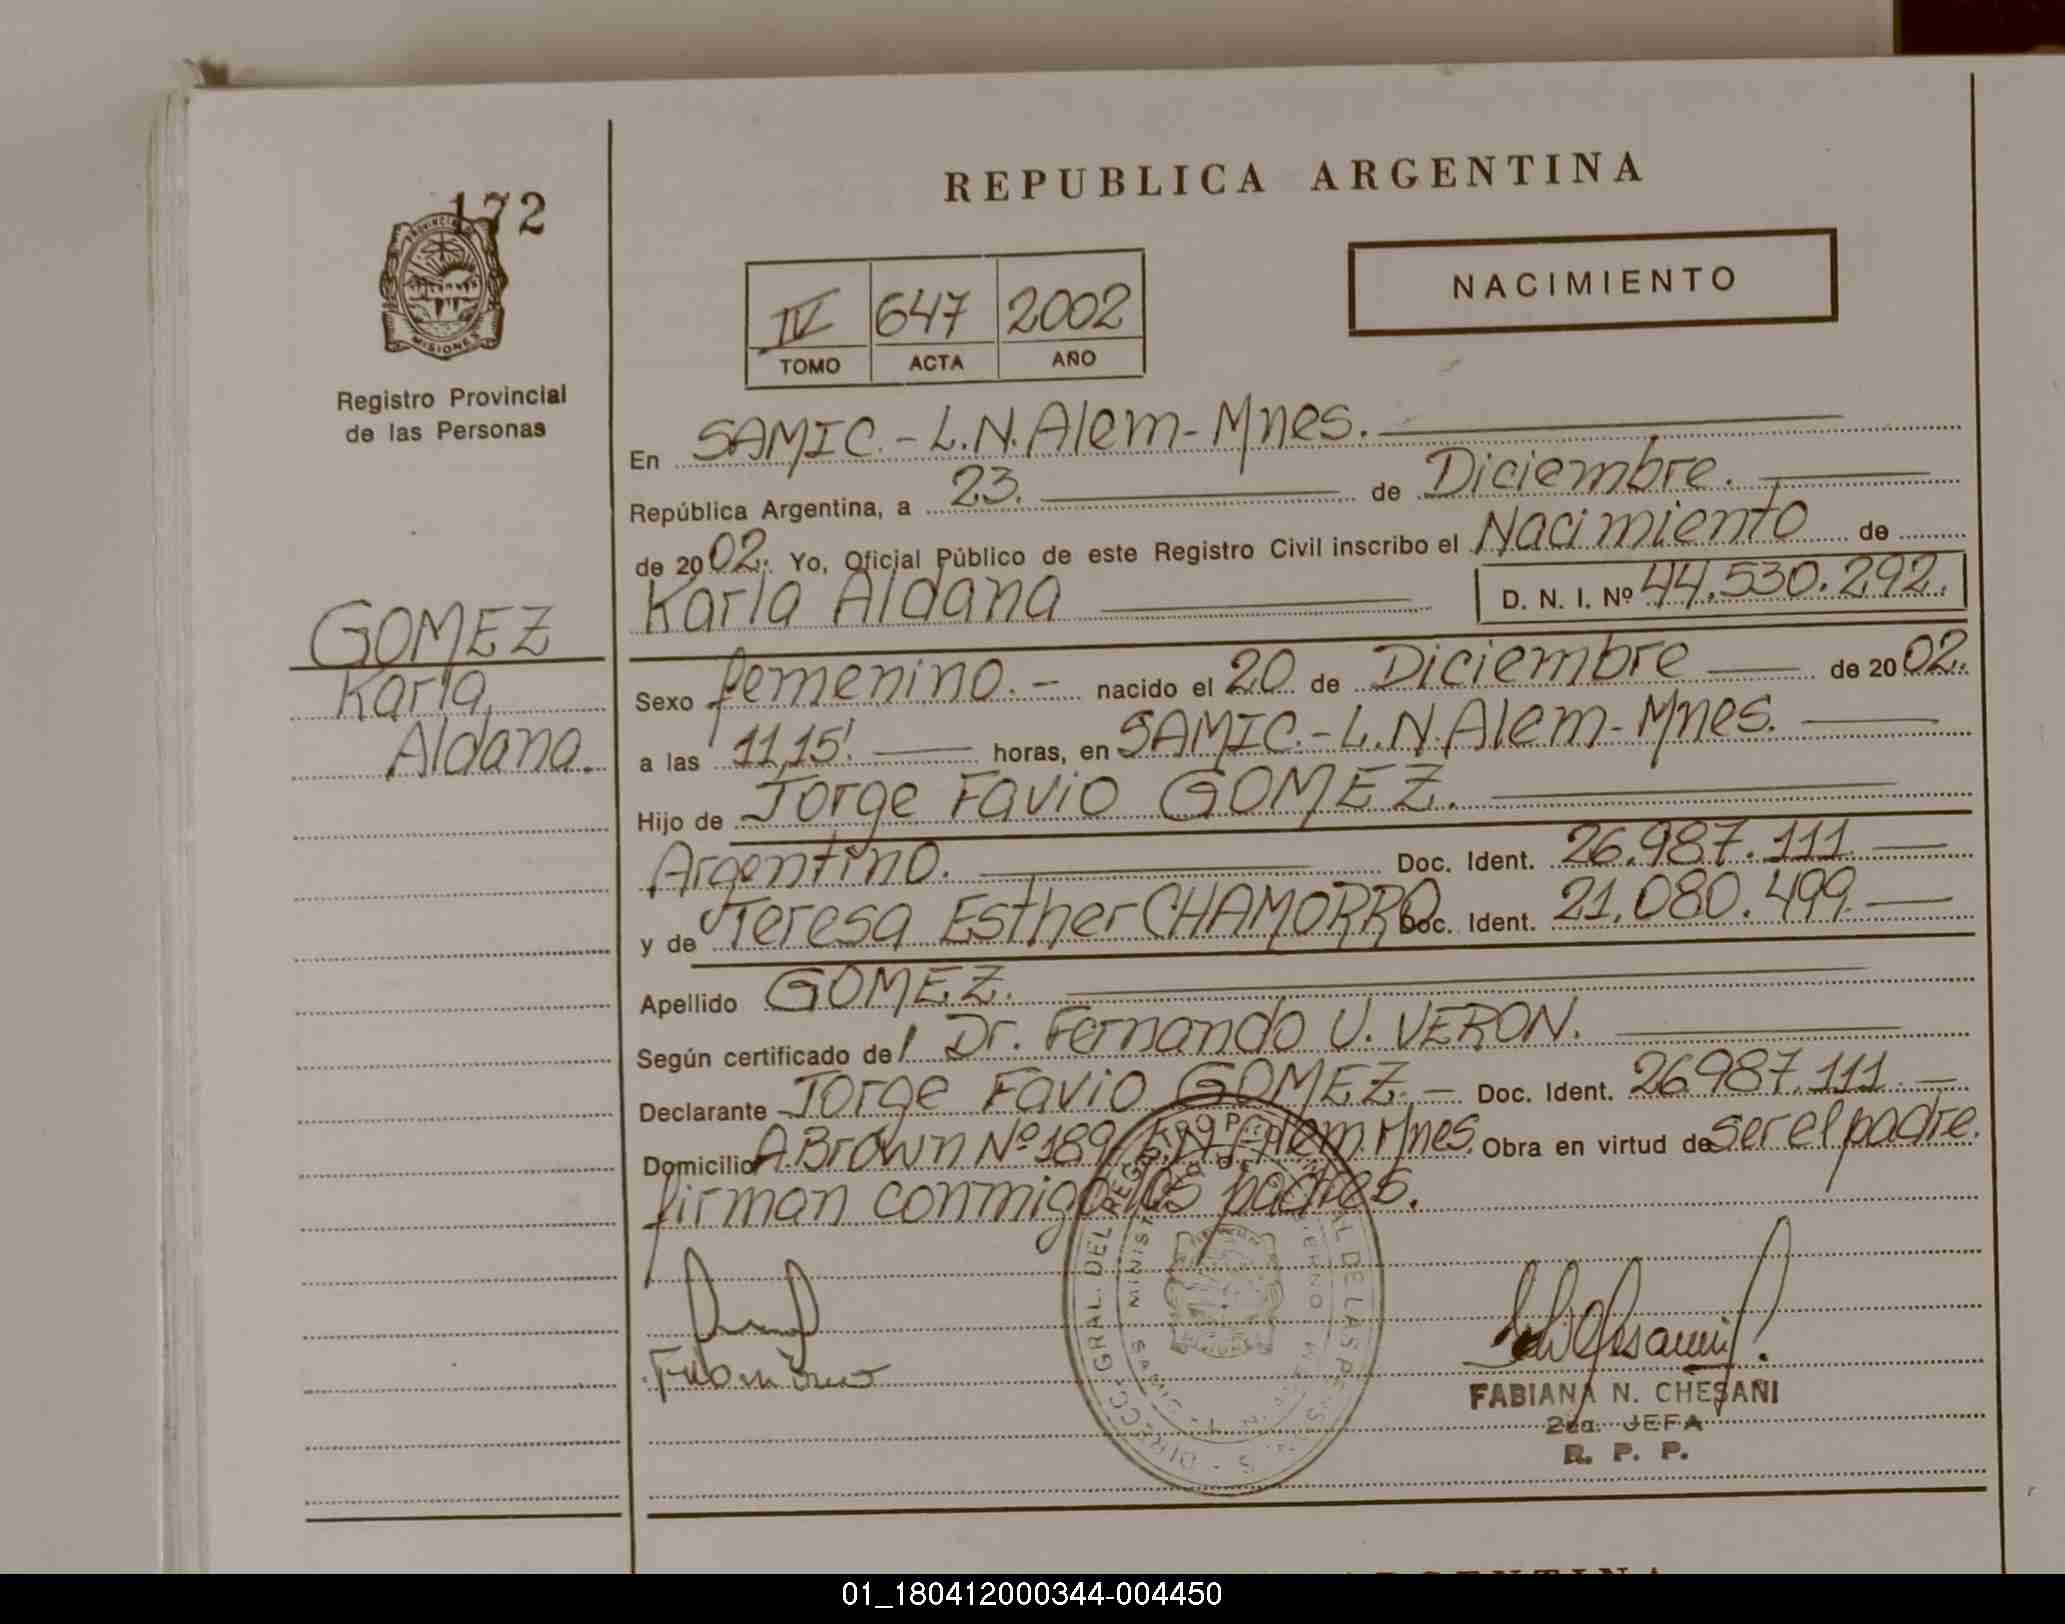 172
PROVINCIA DE
MISIONES
Registro Provincial
de las Personas
GOMEZ
Karla
Aldana.
REPUBLICA ARGENTINA
NACIMIENTO
IV 647 2002
TOMO ACTA AÑO
En SAMIC.-L.N.Alem-Mnes.
República Argentina, a 23. de Diciembre.
de 2002. Yo, Oficial Público de este Registro Civil inscribo el Nacimiento de
Karla Aldana D. N. I. Nº 44.530.292.
Sexo femenino.- nacido el 20 de Diciembre de 2002.
a las 11,15' horas, en SAMIC.-L.N.Alem-Mnes.
Hijo de Jorge Favio GOMEZ.
Argentino. Doc. Ident. 26.987.111
y de Teresa Esther CHAMORRO Doc. Ident. 21.080.499
Apellido GOMEZ.
Según certificado del Dr. Fernando U. VERON.
Declarante Jorge Favio GOMEZ.- Doc. Ident. 26987.111
Domicilio A.Brown Nº 189 L.N.Alem.Mnes. Obra en virtud de ser el padre.
firman conmigo los padres.
FABIANA N. CHESANI
2da. JEFA
R. P. P.
01_180412000344-004450